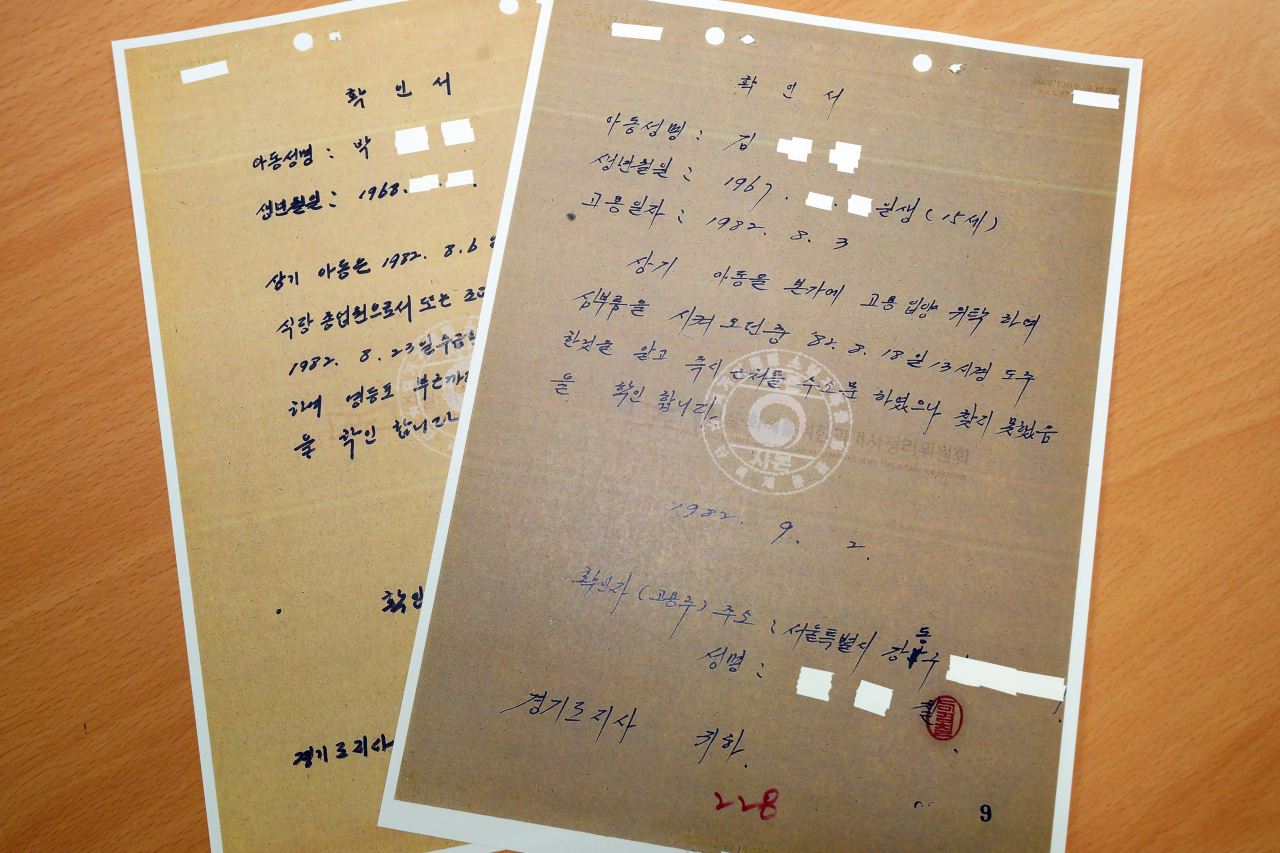 확인서
아동성명 : 박
생년월일 : 1968. .
상기 아동은 1982. 8. 6
식당 종업원으로서 또는
1982. 8. 23일 수금
하여 영등포 부근
을 확인 합니다
확인
경기도지사
확인서
아동성명 : 김
생년월일 : 1967. . 일생 (15세)
고용일자 : 1982. 8. 3
상기 아동을 본가에 고용 입양 위탁 하여
심부름을 시켜 오던중 '82. 8. 18일 13시경 도주
한것을 알고 즉시 근처를 수소문 하였으나 찾지 못했음
을 확인 합니다.
사본
1982. 9. 2.
확인자 (고용주) 주소 : 서울특별시 강동구
성명 :
경기도지사 귀하.
228
9